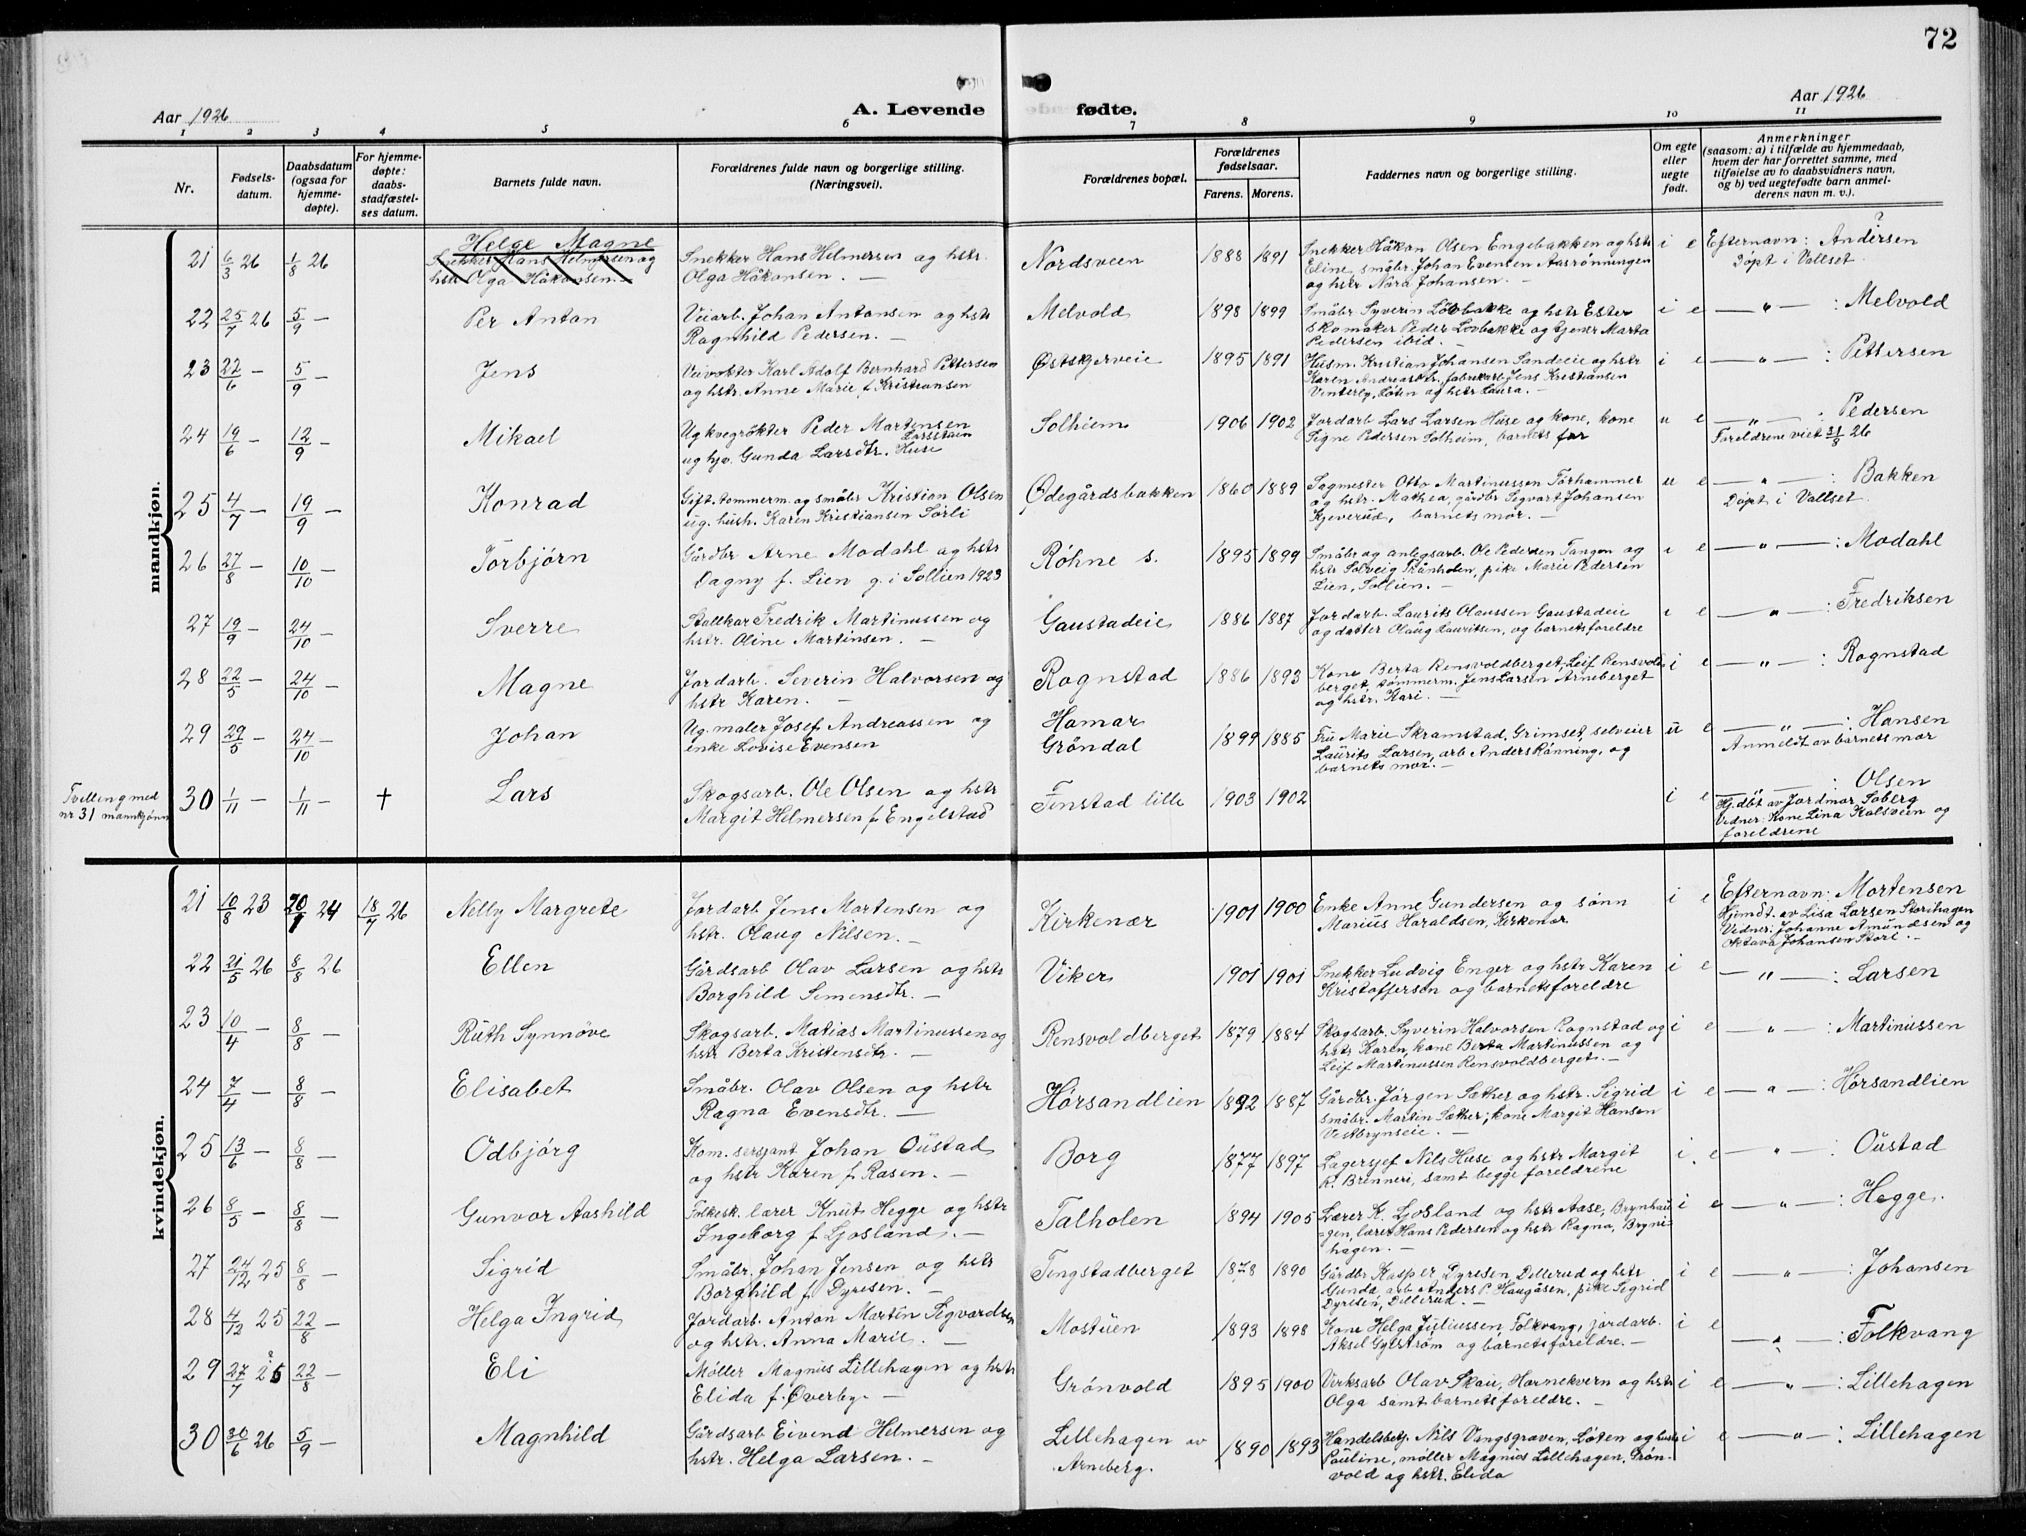 72
Aar 1926
A. Levende
fødte.
Aar 1926
1 2 3 4 5 6 7 8 9 10 11
Nr.
Fødsels-
datum.
Daabsdatum
(ogsaa for
hjemme-
døpte).
For hjemme-
døpte:
daabs-
stadfæstel-
ses datum.
Barnets fulde navn.
Forældrenes fulde navn og borgerlige stilling.
(Næringsvei).
Forældrenes bopæl.
Forældrenes
fødselsaar.
Farens. Morens.
Faddernes navn og borgerlige stilling.
Om egte
eller
uegte
født.
Anmerkninger
(saasom: a) i tilfælde av hjemmedaab,
hvem der har forrettet samme, med
tilføielse av to daabsvidners navn,
og b) ved uegtefødte barn anmel-
derens navn m. v.).
mandkjøn.
21 6/3 26 1/8 26
Helge Magne
Snekker Hans Helmersen og
hstr Olga Håkonsen.
Snekker Hans Helmersen og hstr.
Olga Håkonsen. —
Nordsveen 1888 1891
Snekker Håkon Olsen Engebakken og hstr
Eline, småbr. Johan Evensen Aasrønningen
og hstr Nora Johansen. —
i e
Efternavn: Andersen ?
Døpt i Vallset.
22 25/7 26 5/9 —
Per Anton
Veiarb. Johan Antonsen og hstr
Ragnhild Pedersen. —
Melvold 1898 1899
Småbr Syverin Løvbakke og hstr Ester
skomaker Peder Lovbakke og tjener Marta
Pedersen ibid. —
i e
— " — : Melvold
23 22/6 — 5/9 —
Jens
Veivokter Karl Adolf Bernhard Pettersen
og hstr. Anne Marie f. Kristiansen
Østskjerveie 1895 1891
Husm. Kristian Johansen Sandeie og hstr
Karen Andreasdtr, fabrikarb Jens Kristiansen
Vinterby, Løten og hstr Laura. —
i e
— " — : Pettersen
24 19/6 — 12/9 —
Mikael
Ug kvegrøkter Peder Martinsen
ug hjv. Gunda Larsdtr. Huse
Solheim 1906 1902
Jordarb Lars Larsen Huse og kone, kone
Signe Pedersen Solheim, barnets far
u e
— " — : Pedersen
Foreldrene viet 31/8 26
25 4/7 — 19/9 —
Konrad
Gift. tommerm. og småbr Kristian Olsen
ug. hush. Karen Kristiansen Sørli
Ødegårdsbakken 1860 1889
Sagmester Otto Martinussen Torhammer
og hstr. Mathea, gårdbr Sigvart Johansen
Kjeverud, barnets mor. —
u e
— " — : Bakken
Døpt i Vallset.
26 27/8 — 10/10 —
Torbjørn
Gårdbr Arne Modahl og hstr
Dagny f. Lien g. i Sollien 1923
Røhne s. 1895 1899
Småbr og anlegsarb. Ole Pedersen Tangen og
hstr Solveig Skånholen, pike Marie Pedersen
Lien, Sollien. —
i e
— " — : Modahl
27 19/9 — 24/10 —
Sverre
Stallkar Fredrik Martinussen og
hstr. Oline Martinsen. —
Gaustadeie 1886 1887
Jordarb. Laurits Olaussen Gaustadeie
og datter Olaug Lauritsen, og barnets foreldre
i e
— " — : Fredriksen
28 22/5 — 24/10 —
Magne
Jordarb. Severin Halvorsen og
hstr Karen. —
Rognstad 1886 1893
Kone Berta Rensvoldberget, Leif Rensvold-
berget, tømmerm. Jens Larsen Arneberget
og hstr. Kari. —
i e
— " — : Rognstad
29 29/5 — 24/10 —
Johan
Ug. maler Josef Andreassen og
enke Lovise Evensen
Hamar
Grøndal
1899 1885
Fru Marie Skramstad, Grimset, selveier
Laurits Larsen, arb Anders Rønning, og
barnets mor. —
u e
— " — : Hansen
Anmeldt av barnets mor
Tvilling med
nr 31 mannkjønn
30 1/11 — 1/11 — †
Lars
Skogsarb. Ole Olsen og hstr
Margit Helmersen f. Engelstad
Finstad lille 1903 1902
i e
— : Olsen
Hj.døt av Jordmor Soberg
Vidner: Kone Lina Kolsveen og
foreldrene
kvindekjøn.
21 10/8 23 20/1 24 18/7 26
Nelly Margrete
Jordarb Jens Mortensen og
hstr. Olaug Nilsen. —
Kirkenær 1901 1900
Enke Anne Gundersen og sønn
Marius Haraldsen, Kirkenær
i e
Efternavn: Mortensen
Hjmdt. av Lisa Larsen Storihagen
Vidner: Johanne Amundsen og
Oktava Johansen Stori. —
22 21/5 26 8/8 26
Ellen
Gårdsarb Olav Larsen og hstr
Borghild Simensdtr. —
Viker 1901 1901
Snekker Ludvig Enger og hstr Karen
Kristoffersen og barnets foreldre
i e
— " — : Larsen
23 10/4 — 8/8 —
Ruth Synnøve
Skogsarb. Matias Martinussen og
hstr Berta Kristensdtr. —
Rensvoldberget 1879 1884
Skogsarb. Syverin Halvorsen Rognstad og
hstr Karen, kone Berta Martinussen og
Leif Martinussen Rensvoldberget. —
i e
— " — : Martinussen
24 7/4 — 8/8 —
Elisabet
Småbr. Olav Olsen og hstr
Ragna Evensdtr. —
Hørsandlien 1892 1887
Gårdbr. Jørgen Sæther og hstr. Sigrid
småbr. Martin Sæther, kone Margit Hanson
Vestbrynseie. —
i e
— " — : Hørsandlien
25 13/6 — 8/8 —
Odbjørg
Kom. sersjant Johan Oustad
og hstr Karen f. Rasen. —
Borg 1877 1897
Lagersjef Nils Huse og hstr Margit
R. Brenneri, samt begge foreldrene
i. e
— " — : Oustad
26 8/5 — 8/8 —
Gunvor Aashild
Folkesk. lærer Knut Hegge og hstr
Ingeborg f. Ljosland. —
Talholen 1894 1905
Lærer K. Ljosland og hstr Aase, Brynhau-
gen, lærer Hans Pedersen og hstr Ragna, Bryni-
hagen. —
i e
— " — : Hegge.
27 24/12 25 8/8 —
Sigrid
Småbr. Johan Jensen og hstr
Borghild f. Dyresen. —
Tingstadberget 1878 1890
Gårdbr Kasper Dyresen, Dillerud og hstr
Gunda, arb Anders P. Haugåsen, pike Sigrid
Dyresen, Dillerud. —
i e
— " — : Johansen
28 4/12 25 22/8 —
Helga Ingrid
Jordarb. Anton Martin Sigvardsen
og hstr. Anna Marie. —
Mostuen 1893 1898
Kone Helga Juliussen, Folkvang, jordarb.
Aksel Gylstrøm og barnets foreldre. —
i e
— " — : Folkvang
29 27/7 25 ? 22/8 —
Eli
Møller Magnus Lillehagen og hstr
Elida f. Øverby —
Grønvold 1895 1900
Virksarb Olav Skau, Hornekvern og hstr
Olga samt barnets foreldre. —
i e
— " — : Lillehagen
30 30/6 26 5/9 —
Magnhild
Gårdsarb Eivend Helmersen og
hstr. Helga Larsen. —
Lillehagen av
Arneberg.
1890 1893
Handelsbetj. Nils Vangsgraven, Løten og hustr
Pauline, møller Magnus Lillehagen, Grøn-
vold og hstr. Elida
i e
— " — : Lillehagen